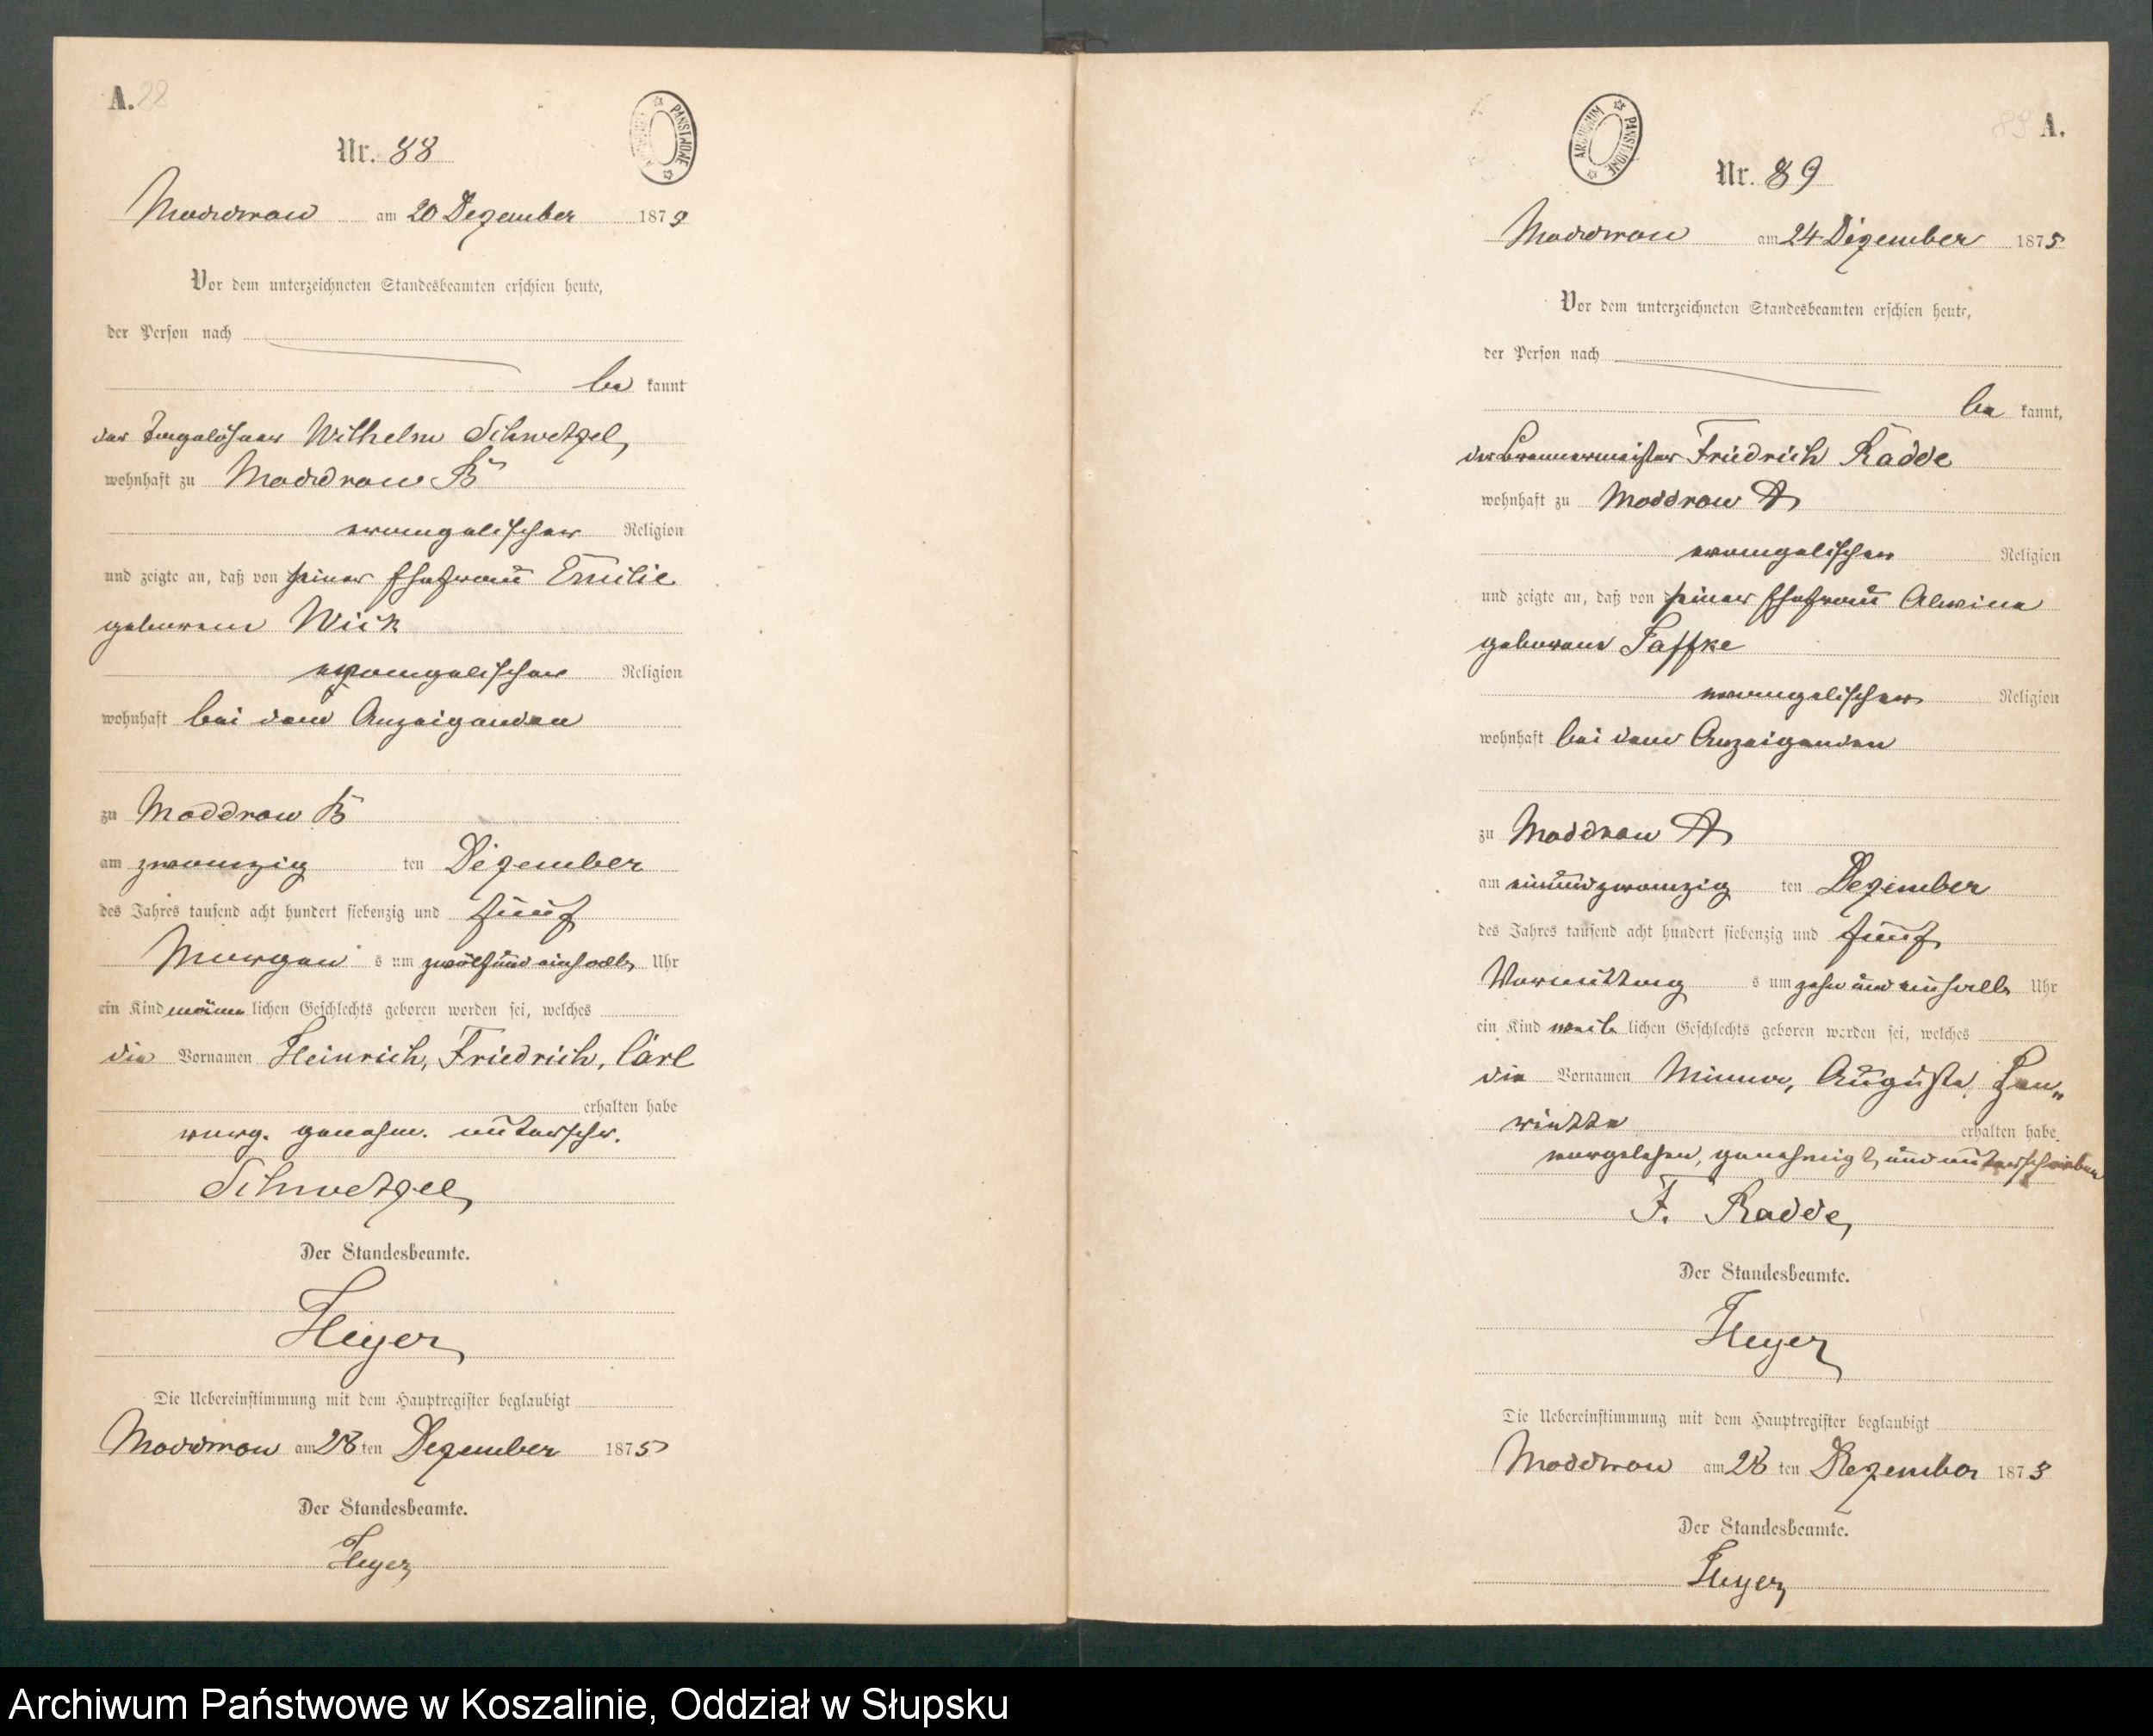 A. 88
ARCHIWUM PAŃSTWOWE
Nr. 88
Moddrow am 20 Dezember 1875
Vor dem unterzeichneten Standesbeamten erschien heute,
der Person nach
be kannt
der Tagelöhner Wilhelm Schwetzel,
wohnhaft zu Moddrow B
evangelischer Religion
und zeigte an, daß von seiner Ehefrau Emilie
geborenen Wick
evangelischer Religion
wohnhaft bei dem Anzeigenden
zu Moddrow B
am zwanzig ten Dezember
des Jahres tausend acht hundert siebenzig und fünf
Morgen s um zwölf und einhalb Uhr
ein Kind männ lichen Geschlechts geboren worden sei, welches
die Vornamen Heinrich, Friedrich, Carl
erhalten habe
vorg. genehm. unterschr.
Schwetzel,
Der Standesbeamte.
Heyer
Die Uebereinstimmung mit dem Hauptregister beglaubigt
Moddrow am 28 ten Dezember 1875
Der Standesbeamte.
Heyer
89 A.
ARCHIWUM PAŃSTWOWE
Nr. 89
Moddrow am 24 Dezember 1875
Vor dem unterzeichneten Standesbeamten erschien heute,
der Person nach
be kannt,
der Brennermeister Friedrich Radde
wohnhaft zu Moddrow A
evangelischer Religion
und zeigte an, daß von seiner Ehefrau Alwine
geborene Paffke
evangelischer Religion
wohnhaft bei dem Anzeigenden
zu Moddrow A
am einundzwanzig ten Dezember
des Jahres tausend acht hundert siebenzig und fünf
Vormittag s um zehn und einhalb Uhr
ein Kind weib lichen Geschlechts geboren worden sei, welches
die Vornamen Minna, Auguste, Hen„
riette erhalten habe
vorgelesen, genehmigt und unterschrieben
F. Radde,
Der Standesbeamte.
Heyer
Die Uebereinstimmung mit dem Hauptregister beglaubigt
Moddrow am 28 ten Dezember 1875
Der Standesbeamte.
Heyer
Archiwum Państwowe w Koszalinie, Oddział w Słupsku